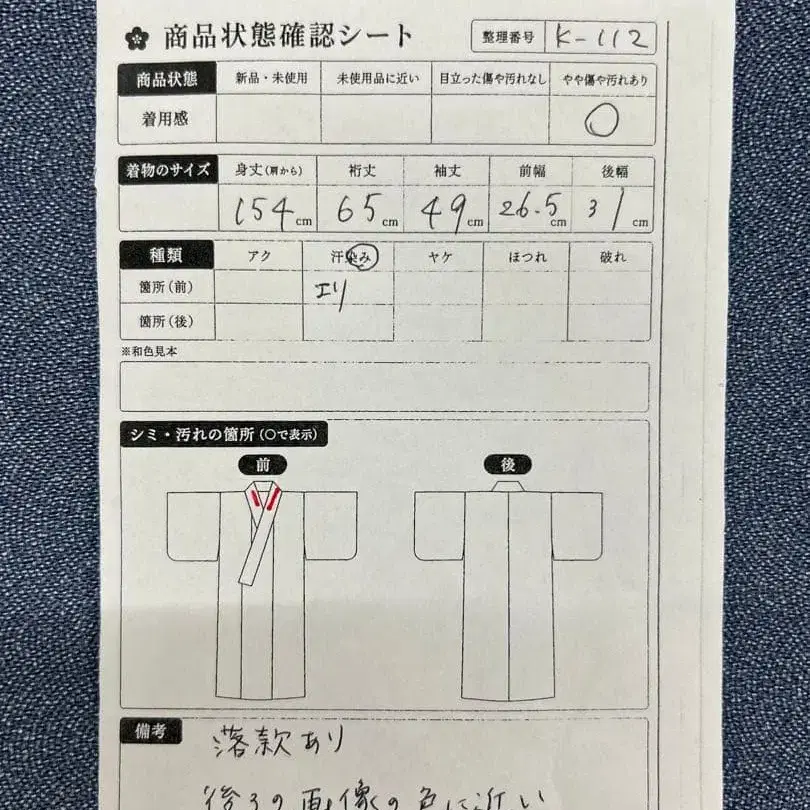 商品状態確認シート 整理番号 K-112
商品状態 新品・未使用 未使用品に近い 目立った傷や汚れなし やや傷や汚れあり
着用感 ○
着物のサイズ 身丈(肩から) 裄丈 袖丈 前幅 後幅
154cm 65cm 49cm 26.5cm 31cm
種類 アク 汗染み ヤケ ほつれ 破れ
箇所(前) エリ
箇所(後)
※和色見本
シミ・汚れの箇所(○で表示)
前 後
備考 落款あり
後ろの画像の色に近い